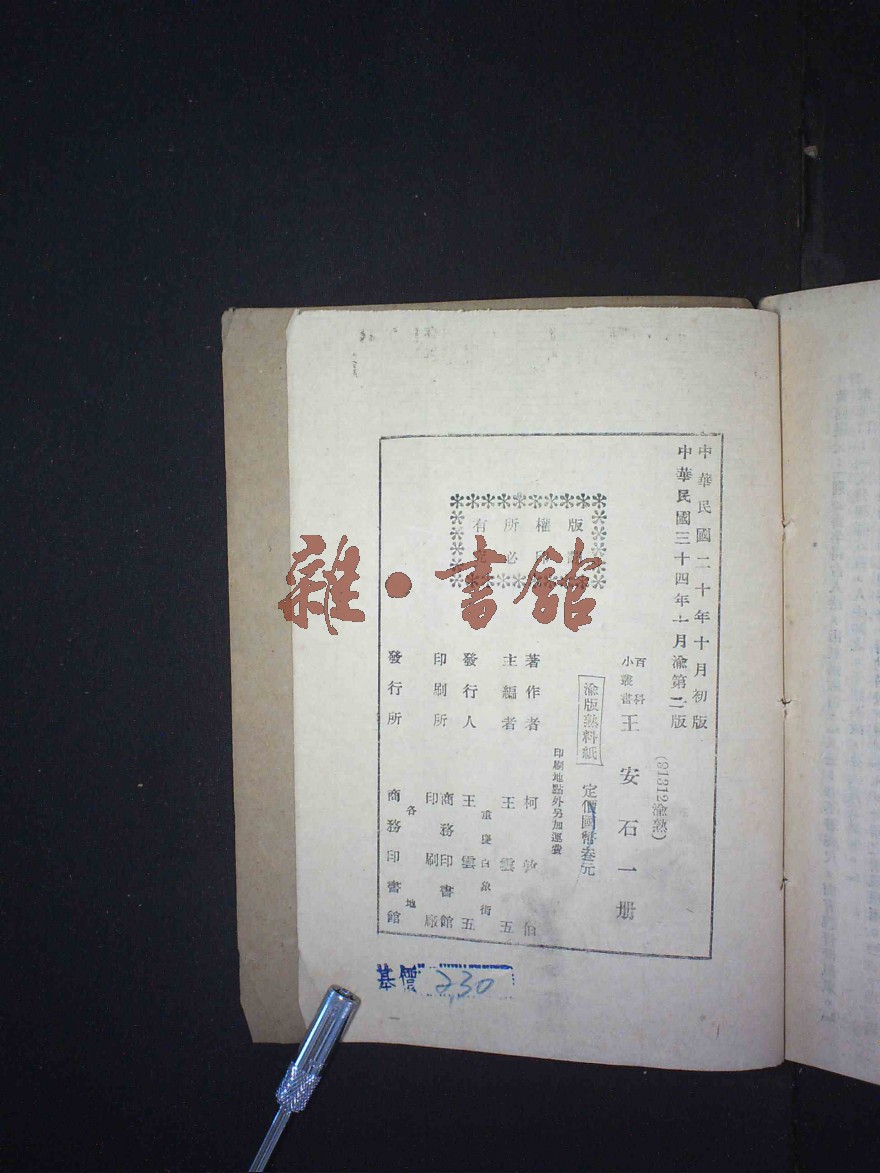 中華民國二十年十月初版
中華民國三十四年十月渝第二版
(91312渝熟)
百科小叢書 王安石一册
渝版熟料紙 定價國幣叁元
印刷地點外另加運費
版權所有
必
著作者 柯敦伯
主編者 王雲五
重慶白象街
發行人 王雲五
印刷所 商務印書館印刷廠
發行所 各地 商務印書館
基價 230
雜·書館